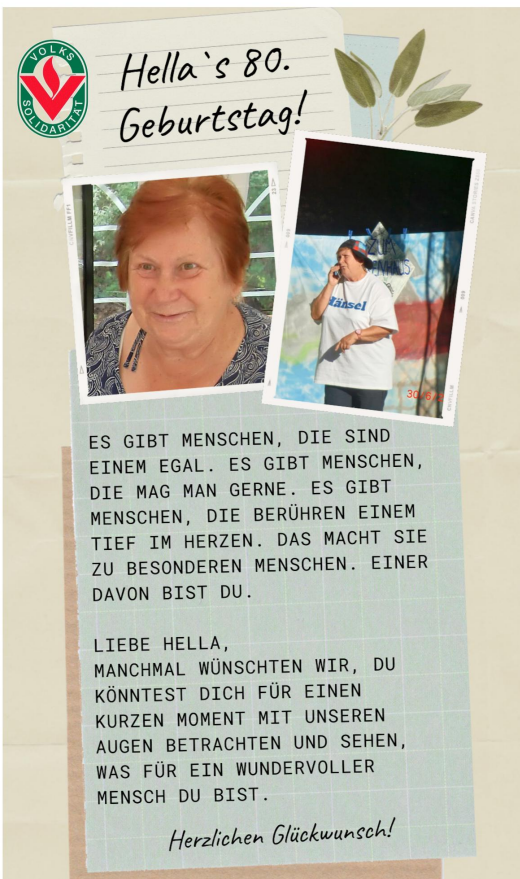 VOLKS
SOLIDARITÄT
Hella`s 80.
Geburtstag!
ZUM
Hänsel
ES GIBT MENSCHEN, DIE SIND
EINEM EGAL. ES GIBT MENSCHEN,
DIE MAG MAN GERNE. ES GIBT
MENSCHEN, DIE BERÜHREN EINEM
TIEF IM HERZEN. DAS MACHT SIE
ZU BESONDEREN MENSCHEN. EINER
DAVON BIST DU.
LIEBE HELLA,
MANCHMAL WÜNSCHTEN WIR, DU
KÖNNTEST DICH FÜR EINEN
KURZEN MOMENT MIT UNSEREN
AUGEN BETRACHTEN UND SEHEN,
WAS FÜR EIN WUNDERVOLLER
MENSCH DU BIST.
Herzlichen Glückwunsch!